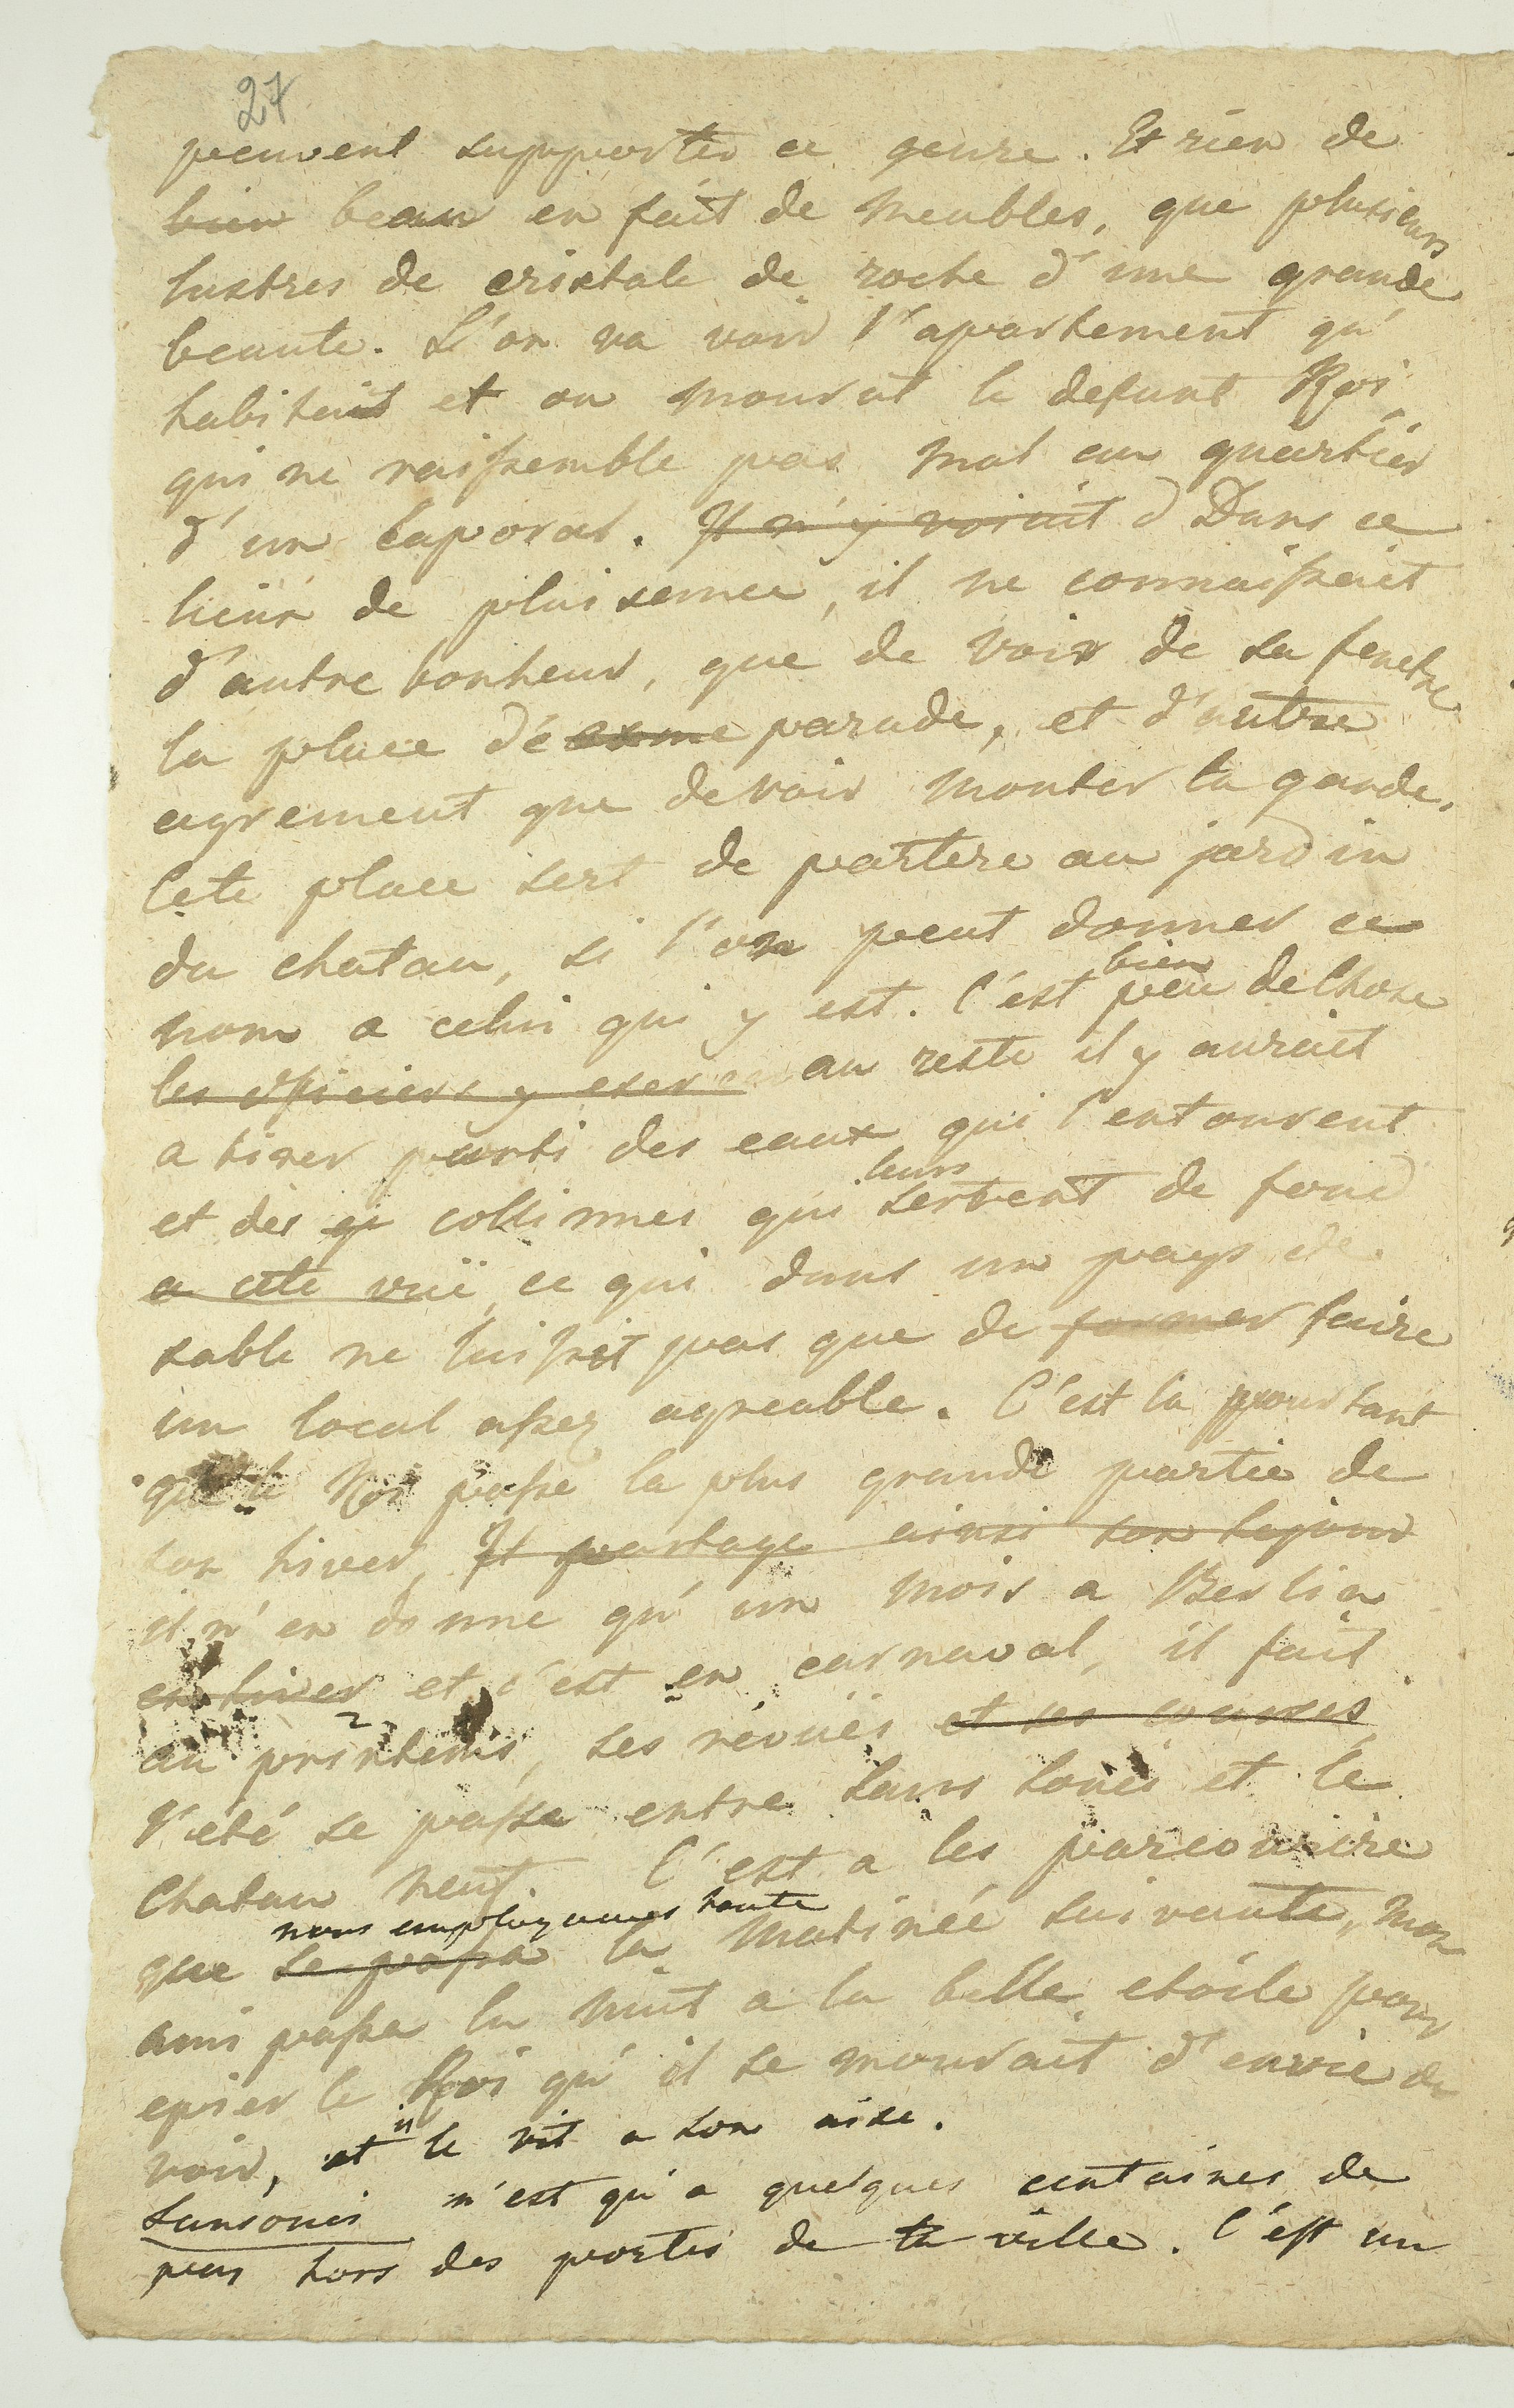 27
peuvent supporter ce genre. Et rien de
bien beau en fait de meubles, que plusieurs
lustres de cristale de roche d'une grande
beaute. L'on va voir l'apartement qu'
habitait et ou mourut le defunt Roi,
qui ne raissemble pas mal au quartier
d'un caporal. Il n'y voiait d Dans ce
lieux de plaisence, il ne connaissait
d'autre bonheur, que de voir de sa fenetre
la place de parade, et d'autre
agrement que de voir monter la garde.
Cete place sert de partere au jardin
du chatau, si l'on peut donner ce
nom a celui qui y est. C'est bien peu de Chose
les oficiers y exer au reste il y aurait
a tirer parti des eaux qui l'entourent
et des collinnes qui leurs servent de fond
a cete vuë, ce qui dans un pays de
sable ne laissait pas que de former faire
un local assez agreable. C'est la pourtant
que le Roi passe la plus grande partie de
son hiver, Il partage ainsi son sejour
il n'en donne qu'un mois a Berlin
en hiver et c'est en carnaval, il fait
au printems, ses revuës et ses courses,
l'eté se passe entre Sans Souci et le
Chatau neuf. C'est a les parcourire
que se passa nous employames toute la matineé suivante, mon
ami passa la nuit a la belle etoile pour
epier le Roi qu'il se mourait d'envie de
voir, et il le vit a son aise.
Sansouci n'est qu'a quelques centaines de
pas hors des portes de la ville. C'est un